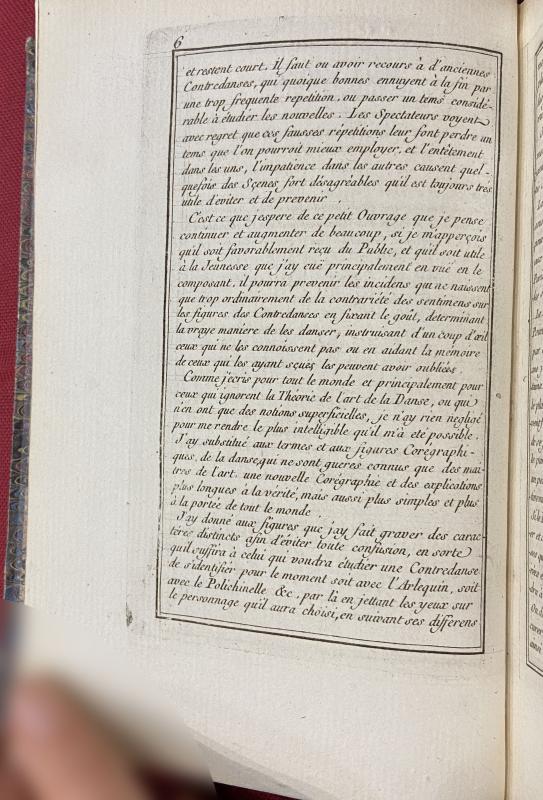 6
et restent court. Il faut ou avoir recours à d'anciennes
Contredanses, qui quoique bonnes ennuyent à la fin par
une trop frequente repetition, ou passer un tems considé-
rable à étudier les nouvelles. Les Spectateurs voyent
avec regret que ces fausses répétitions leur font perdre un
tems que l'on pourroit mieux employer, et l'entêtement
dans les uns, l'impatience dans les autres causent quel-
quefois des Sçenes fort désagréables qu'il est toujours tres
utile d'éviter et de prevenir.
C'est ce que j'espere de ce petit Ouvrage que je pense
continuer et augmenter de beaucoup, si je m'apperçois
qu'il soit favorablement reçu du Public, et qu'il soit utile
à la Jeunesse que j'ay eüe principalement en vuë en le
composant, il pourra prevenir les incidens qui ne naissent
que trop ordinairement de la contrarieté des sentimens sur
les figures des Contredanses en fixant le goût, determinant
la vraye maniere de les danser, instruisant d'un coup d'œil
ceux qui ne les connoissent pas ou en aidant la mémoire
de ceux qui les ayant sçuës, les peuvent avoir oubliées.
Comme j'ecris pour tout le monde et principalement pour
ceux qui ignorent la Théorie de l'art de la Danse, ou qui
n'en ont que des notions superficielles, je n'ay rien negligé
pour me rendre le plus intelligible qu'il m'a eté possible.
J'ay substitué aux termes et aux figures Corégraphi-
ques, de la danse, qui ne sont gueres connus que des mai-
tres de l'art. une nouvelle Corégraphie et des explications
plus longues à la vérité, mais aussi plus simples et plus
à la portée de tout le monde.
J'ay donné aux figures que j'ay fait graver des carac-
téres distincts afin d'éviter toute confusion, en sorte
qu'il suffira à celui qui voudra étudier une Contredanse
de s'identifiér pour le moment soit avec l'Arlequin, soit
avec le Polichinelle &c. par là en jettant les yeux sur
le personnage qu'il aura choisi, en suivant ses différens